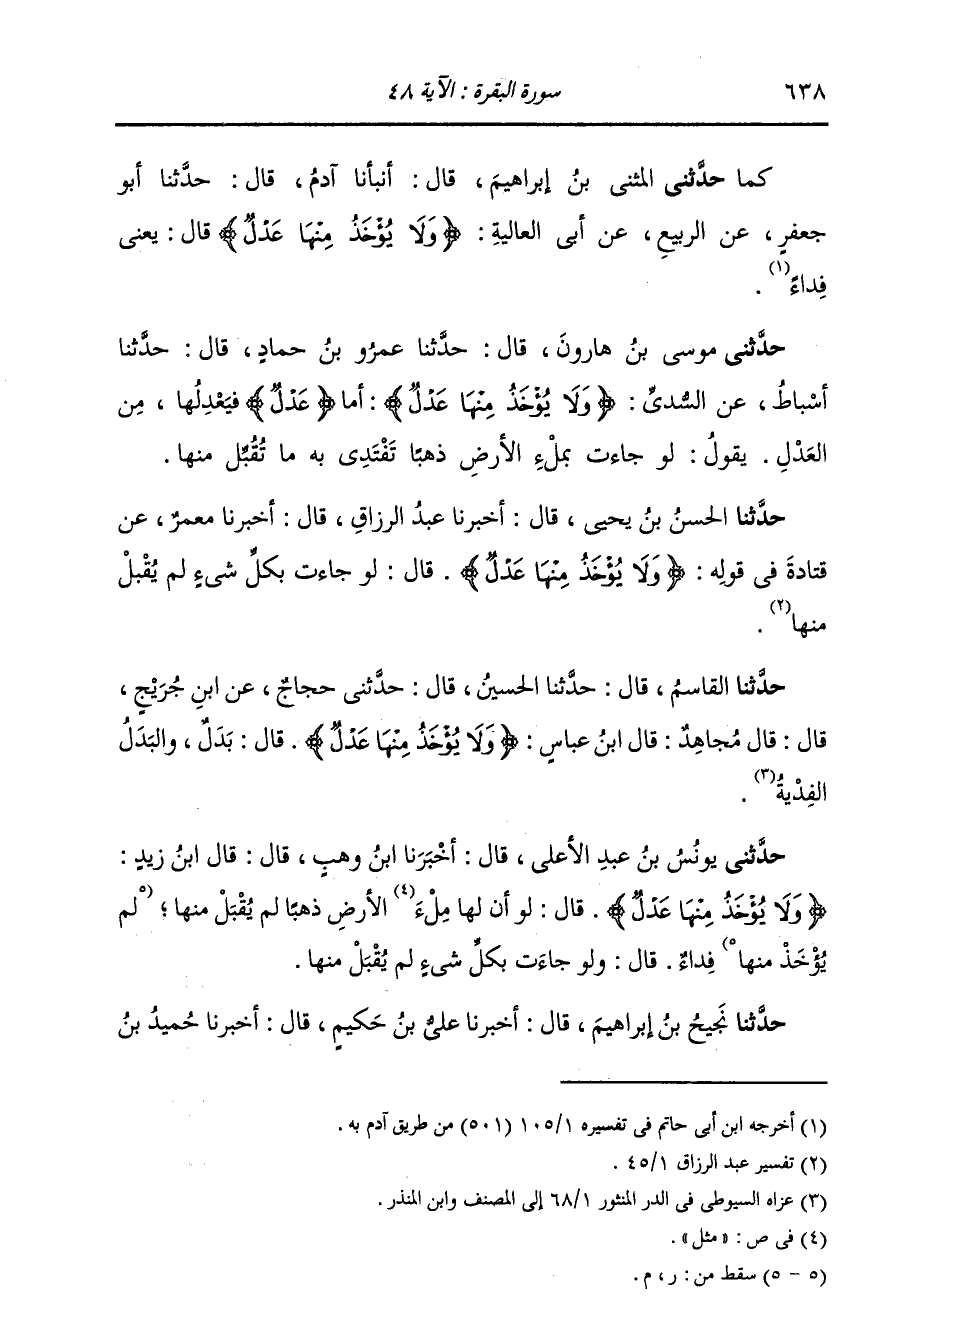 ٦٣٨ سورة البقرة : الآية ٤٨
كما حدَّثنى المثنى بنُ إبراهيمَ ، قال : أنبأنا آدمُ ، قال : حدَّثنا أبو
جعفرٍ ، عن الربيعِ ، عن أبى العاليةِ : ﴿ وَلَا يُؤْخَذُ مِنْهَا عَدْلٌ ﴾ قال : يعنى
فِداءً(١) .
حدَّثنى موسى بنُ هارونَ ، قال : حدَّثنا عمرُو بنُ حمادٍ ، قال : حدَّثنا
أسْباطُ ، عن السُّدىِّ : ﴿ وَلَا يُؤْخَذُ مِنْهَا عَدْلٌ ﴾ : أما ﴿ عَدْلٌ ﴾ فيَعْدِلُها ، مِن
العَدْلِ . يقولُ : لو جاءت بملْءِ الأرضِ ذهبًا تَفْتَدِى به ما تُقُبِّل منها .
حدَّثنا الحسنُ بنُ يحيى ، قال : أخبرنا عبدُ الرزاقِ ، قال : أخبرنا معمرٌ ، عن
قتادةَ فى قولِه : ﴿ وَلَا يُؤْخَذُ مِنْهَا عَدْلٌ ﴾ . قال : لو جاءت بكلِّ شىءٍ لم يُقْبلْ
منها(٢) .
حدَّثنا القاسمُ ، قال : حدَّثنا الحسينُ ، قال : حدَّثنى حجاجٌ ، عن ابنِ جُرَيْجٍ ،
قال : قال مُجاهِدٌ : قال ابنُ عباسٍ : ﴿ وَلَا يُؤْخَذُ مِنْهَا عَدْلٌ ﴾ . قال : بَدَلٌ ، والبَدَلُ
الفِدْيةُ(٣) .
حدَّثنى يونُسُ بنُ عبدِ الأعلى ، قال : أخْبَرَنا ابنُ وهبٍ ، قال : قال ابنُ زيدٍ :
﴿ وَلَا يُؤْخَذُ مِنْهَا عَدْلٌ ﴾ . قال : لو أن لها مِلْءَ(٤) الأرضِ ذهبًا لم يُقْبَلْ منها ؛ (٥لم
يُؤْخَذْ منها٥) فِداءٌ . قال : ولو جاءَت بكلِّ شىءٍ لم يُقْبَلْ منها .
حدَّثنا نَجيحُ بنُ إبراهيمَ ، قال : أخبرنا علىُّ بنُ حَكيمٍ ، قال : أخبرنا حُميدُ بنُ
(١) أخرجه ابن أبى حاتم فى تفسيره ١٠٥/١ (٥٠١) من طريق آدم به .
(٢) تفسير عبد الرزاق ٤٥/١ .
(٣) عزاه السيوطى فى الدر المنثور ٦٨/١ إلى المصنف وابن المنذر .
(٤) فى ص : « مثل » .
(٥ - ٥) سقط من : ر ، م .